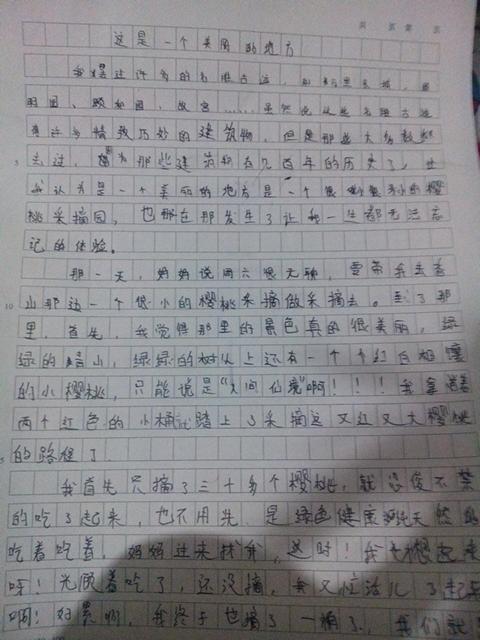 这是一个美丽的地方
我摸过许多的名胜古迹,如万里长城,圆
明园、颐和园、故宫……虽然说从些名胜古迹
有许多精致巧妙的建筑物,但是那些大多数都
去过,因为那些建筑物有几百年的历史了,
我认为是一个美丽的地方是一个很小很小的樱
桃采摘园,也那在那发生了让我一生都无法忘
记的体验。
那一天,妈妈说周六很无聊,要带我去香
山那边一个很小的樱桃采摘做采摘去。到了那
里,首先,我觉得那里的景色真的很美丽,绿
绿的青山,绿绿的树从上还有一个个红白相
的小樱桃,只能说是“人间仙境”啊!!!我拿着
两个红色的小桶就踏上了采摘这又红又大樱桃
的路程了
我首先只摘了三十多个樱桃,就忍俊不禁
的吃了起来,也不用先,是绿色健康纯天然
吃着吃着,妈妈过来找我,这时!我
呀!光顾着吃了,还没摘,我又忙活儿了起
啊!好累啊,我终于也摘了一桶了.,我们就